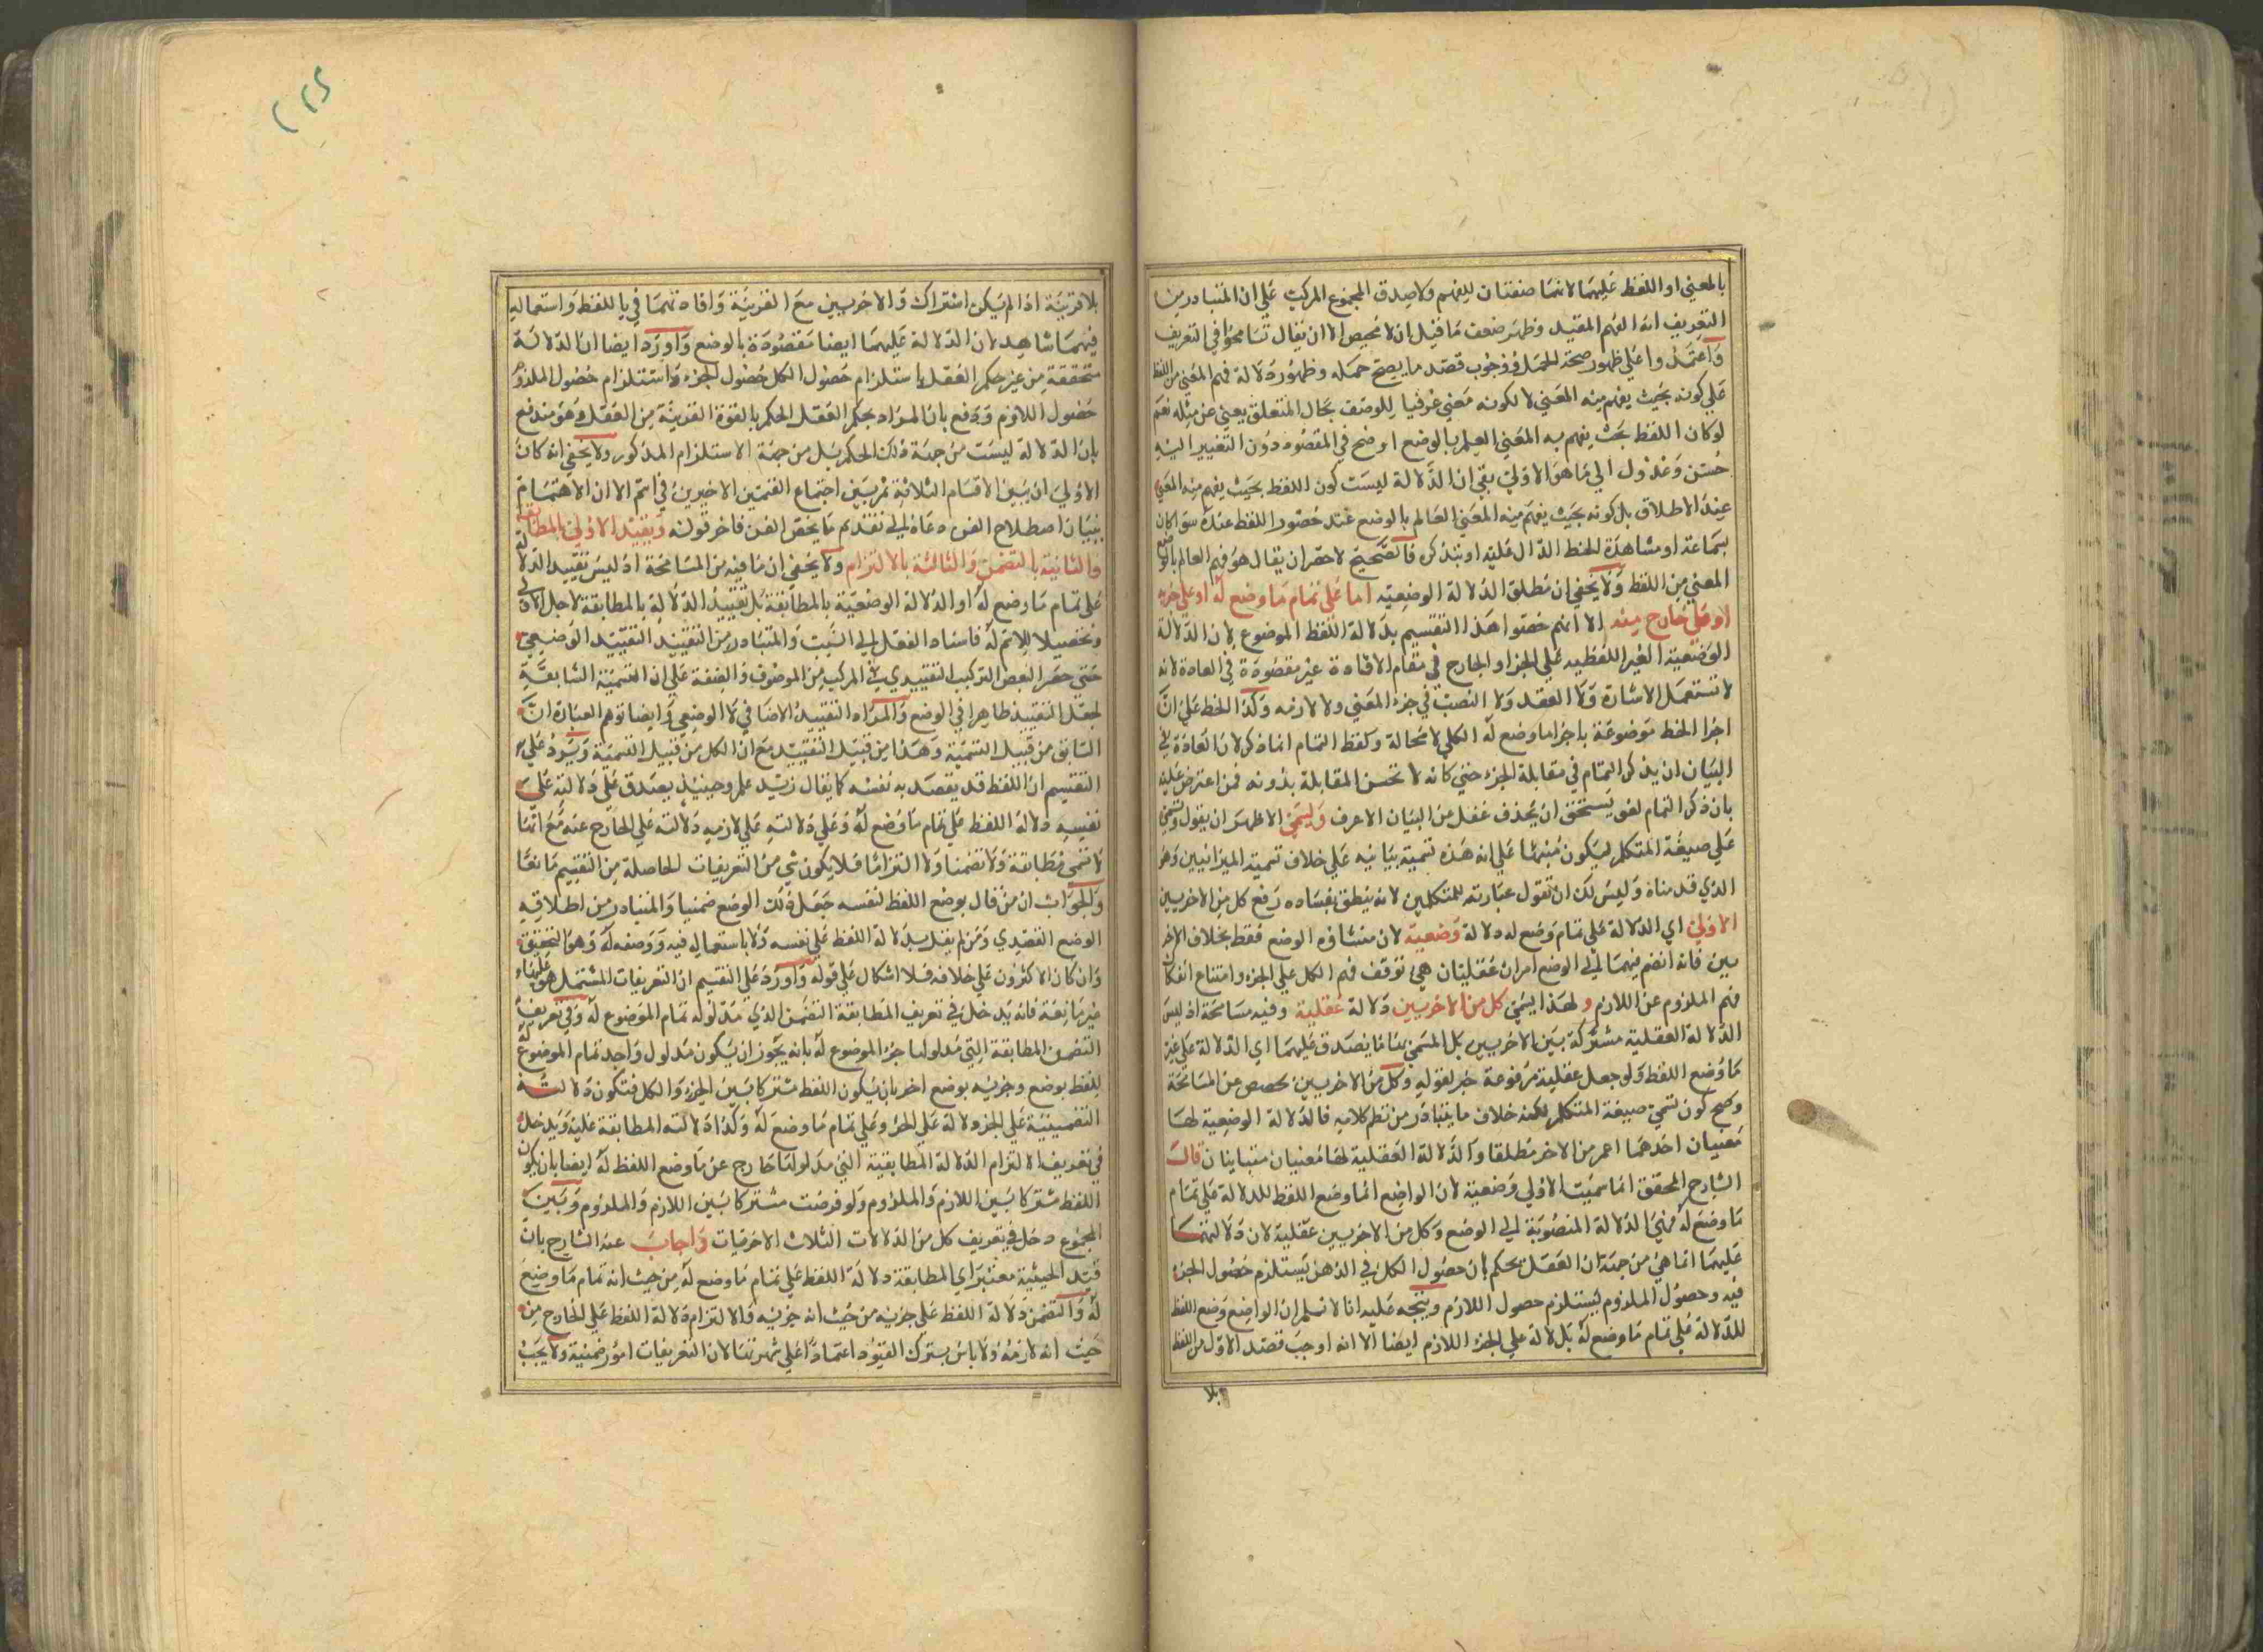 بالمعني او اللفظ عليهما لانهما صفتان للفهم ولا صدق المجموع المركب علي ان المتبادر من
التعريف انه الفهم المقيد وظهر ضعف ما قيل ان لا محيص الا ان يقال تسامحوا في التعريف
واعتمدوا علي ظهور صحة الحمل ووجوب قصد ما يصح حمله وظهور دلالة فهم المعني من اللفظ
علي كونه بحيث يفهم منه المعني لا لكونه معني عرفيا للوصف بحال المتعلق يعني عن مثله نعم
لو كان اللفظ بحيث يفهم به المعني العلم بالوضع اوضح في المقصود دون التغيير اليه
حسن وعدول الي ما هو الاولي بقي ان الدلالة ليست كون اللفظ بحيث يفهم منه المعني
عند الاطلاق بل كونه بحيث يفهم منه المعني العالم بالوضع عند حضور اللفظ عنده سوا كان
بسماعه او مشاهدة الخط الدال عليه او بتذكره فالصحيح لاحضر ان يقال هو فهم العالم بالوضع
المعني من اللفظ ولا يخفي ان مطلق الدلالة الوضعية اما علي تمام ما وضع له او علي جزئه
او علي خارج منه الا انهم خصوا هذا التقسيم بدلالة اللفظ الموضوع لان الدلالة
الوضعية الغير اللفظيه علي الجزا والخارج في مقام الافادة غير مقصودة في العادة لانه
لا تستعمل الاشارة ولا العقد ولا النصب في جزء المعني ولا لازمه وكذا الخط علي ان
اجزا الخط موضوعة باجزا ما وضع له الكلي لا محالة ولفظ التمام انما ذكر لان العادة في
البيان ان يذكر التمام في مقابلة الجزء حتي كانه لا تحسن المقابلة بدونه فمن اعترض عليه
بان ذكر التمام لغو يستحق ان يحذف غفل من البيان الاعرف وليسمي الاظهر ان يقول وتسمي
علي صيغة المتكلم ليكون منبها علي انه هذه تسمية بيانيه علي خلاف تسمية الميزانيين وهو
الذي قدمناه وليس لك ان تقول عبارته للمتكلمين لانه ينطق بفساده رفع كل من الاخريين
الاولي اي الدلالة علي تمام وضع له دلالة وضعية لان منشاؤه الوضع فقط بخلاف الاخر
يين فانه انضم فيهما الي الوضع امران عقليان هي توقف فهم الكل علي الجزء وامتناع انفكاك
فهم الملزوم عن اللازم ولهذا يسمي كل من الاخريين دلالة عقلية وفيه مسامحة اذ ليس
الدلالة العقلية مشتركة بين الاخريين بل المسمي بها ما يصدق عليهما اي الدلالة علي غير
ما وضع اللفظ ولو جعل عقلية مرفوعة خبر لقوله وكل من الاخريين لخصص عن المسامحة
وصح كون تسمي صيغة المتكلم لكنه خلاف ما يتبادر من نظم كلامه فالدلالة الوضعية لها
معنيان احدهما اعم من الاخر مطلقا والدلالة العقلية لها معنيان متباينان قال
الشارح المحقق انما سميت الاولي وضعية لان الواضع انما وضع اللفظ للدلالة علي تمام
ما وضع له فهي الدلالة المنصوبة الي الوضع وكل من الاخريين عقلية لان دلالتهما
عليهما انما هي من جهة ان العقل يحكم بان حصول الكل في الذهن يستلزم حصول الجزء
فيه وحصول الملزوم ليستلزم حصول اللازم ويتجه عليه انا لا نسلم ان الواضع وضع اللفظ
للدلالة علي تمام ما وضع له بل لدلالة علي الجزء اللازم ايضا الا انه اوجب قصد الاول من اللفظ
بلا
بلا قرينة اذا لم يكن اشتراك والاخريين مع القرينة وافادتهما في باللفظ واستعماله
فيهما شاهد لان الدلالة عليهما ايضا مقصودة بالوضع واورد ايضا ان الدلالة
متحققة من غير حكم العقل باستلزام حصول الكل حصول الجزء واستلزام حصول الملزوم
حصول اللازم ودفع بان المراد بحكم العقل الحكم بالقوة القريبة من العقل وهو مندفع
بان الدلالة ليست من جهة ذلك الحكم بل من جهة الاستلزام المذكور ولا يخفي انه كان
الاولي ان يبين الاقسام الثلاثة ثم يبين اجتماع القسمين الاخيرين في اسم الا ان الاهتمام
ببيان اصطلاح الفن دعاه الي تقديم ما يخص الفن فاخر قوله وتقييد الاولي بالمطابقة
والثانية بالتضمن والثالثة بالالتزام ولا يخفي ان ما فيه من المسامحة اذ ليس تقييد الدلالة
علي تمام ما وضع له او الدلالة الوضعية بالمطابقة بل تقييد الدلالة بالمطابقة لاجل الاولي
وتحصيلا للاسم له فاسناد الفعل الي السبب والمتبادر من التقييد التقييد الوضعي
حتي حصر البعض التركيب التقييدي في المركب من الموصوف والصفة علي ان التسمية السابقة
لجعل التقييد ظاهرا في الوضع والمراد التقييد الاضافي لا الوضعي وايضا توهم العبارة ان
السابق من قبيل التسمية وهذا من قبيل التقييد مع ان الكل من قبيل التسمية ويرد علي
التقسيم ان اللفظ قد يقصد به نفسه كما يقال زيد علم وحينئذ يصدق علي دلالته علي
نفسه دلالة اللفظ علي تمام ما وضع له وعلي دلالته علي لازمه دلالته علي الخارج عنه مع انها
لا تسمي مطابقة ولا تضمنا ولا التزاما فلا يكون شي من التعريفات الحاصلة من التقسيم مانعا
والجواب ان من قال بوضع اللفظ لنفسه جعل ذلك الوضع ضمنيا والمتبادر من اطلاقه
الوضع القصدي ومن لم يقل بدلالة اللفظ علي نفسه ولا باستعماله فيه ووصفه له وهو التحقيق
وان كان الاكثرون علي خلافه فلا اشكال علي قوله واورد علي التقسيم ان التعريفات المشتمل هو عليها
غير مانعة فانه يدخل في تعريف المطابقة التضمن الذي مدلوله تمام الموضوع له وفي تعريف
التضمن المطابقة التي مدلولها جزء الموضوع له بانه يجوز ان يكون مدلول واحد تمام الموضوع له
للفظ بوضع وجزئيه بوضع اخر بان يكون اللفظ مشتركا بين الجزء والكل فتكون دلالته
التضمينية علي الجزء دلالة علي الجزء وعلي تمام ما وضع له وكذا دلالته المطابقة عليه ويدخل
في تعريف الالتزام الدلالة المطابقية التي مدلولها خارج عن ما وضع اللفظ له ايضا بان يكون
اللفظ مشتركا بين اللازم والملزوم ولو فرضت مشتركا بين اللازم والملزوم وبين
المجموع دخل في تعريف كل من الدلالات الثلاث الاخريات واجاب عنه الشارح بان
قيد الحيثية معتبر اي المطابقة دلالة اللفظ علي تمام ما وضع له من حيث انه تمام ما وضع
له والتضمن دلالة اللفظ علي جزئه من حيث انه جزئيه والالتزام دلالة اللفظ علي الخارج من
حيث انه لازمه ولا باس بترك القيود اعتمادا علي شهرتها لان التعريفات امور ضمنية ولا يجب